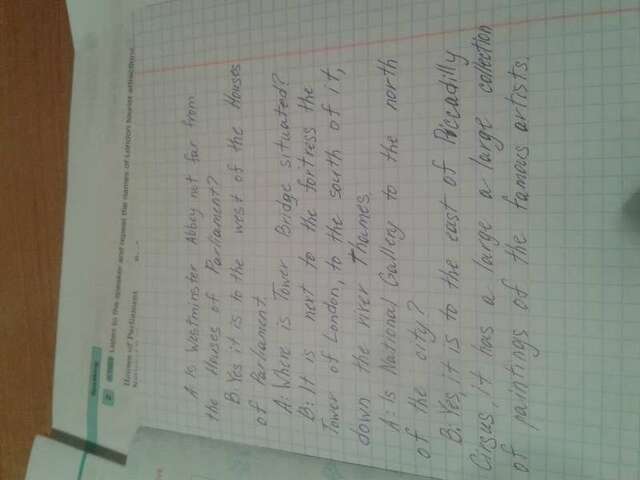 Speaking
2 Listen to the speaker and repeat the names of London tourist attractions.
Houses of Parliament
A: Is Westminster Abbey not far from
the Houses of Parliament?
B: Yes it is to the west of the Houses
of Parliament.
A: Where is Tower Bridge situated?
B: It is next to the fortress the
Tower of London, to the south of it,
down the river Thames.
A: Is National Gallery to the north
of the city?
B: Yes, it is to the east of Piccadilly
Cirsus, it has a large a large collection
of paintings of the famous artists.